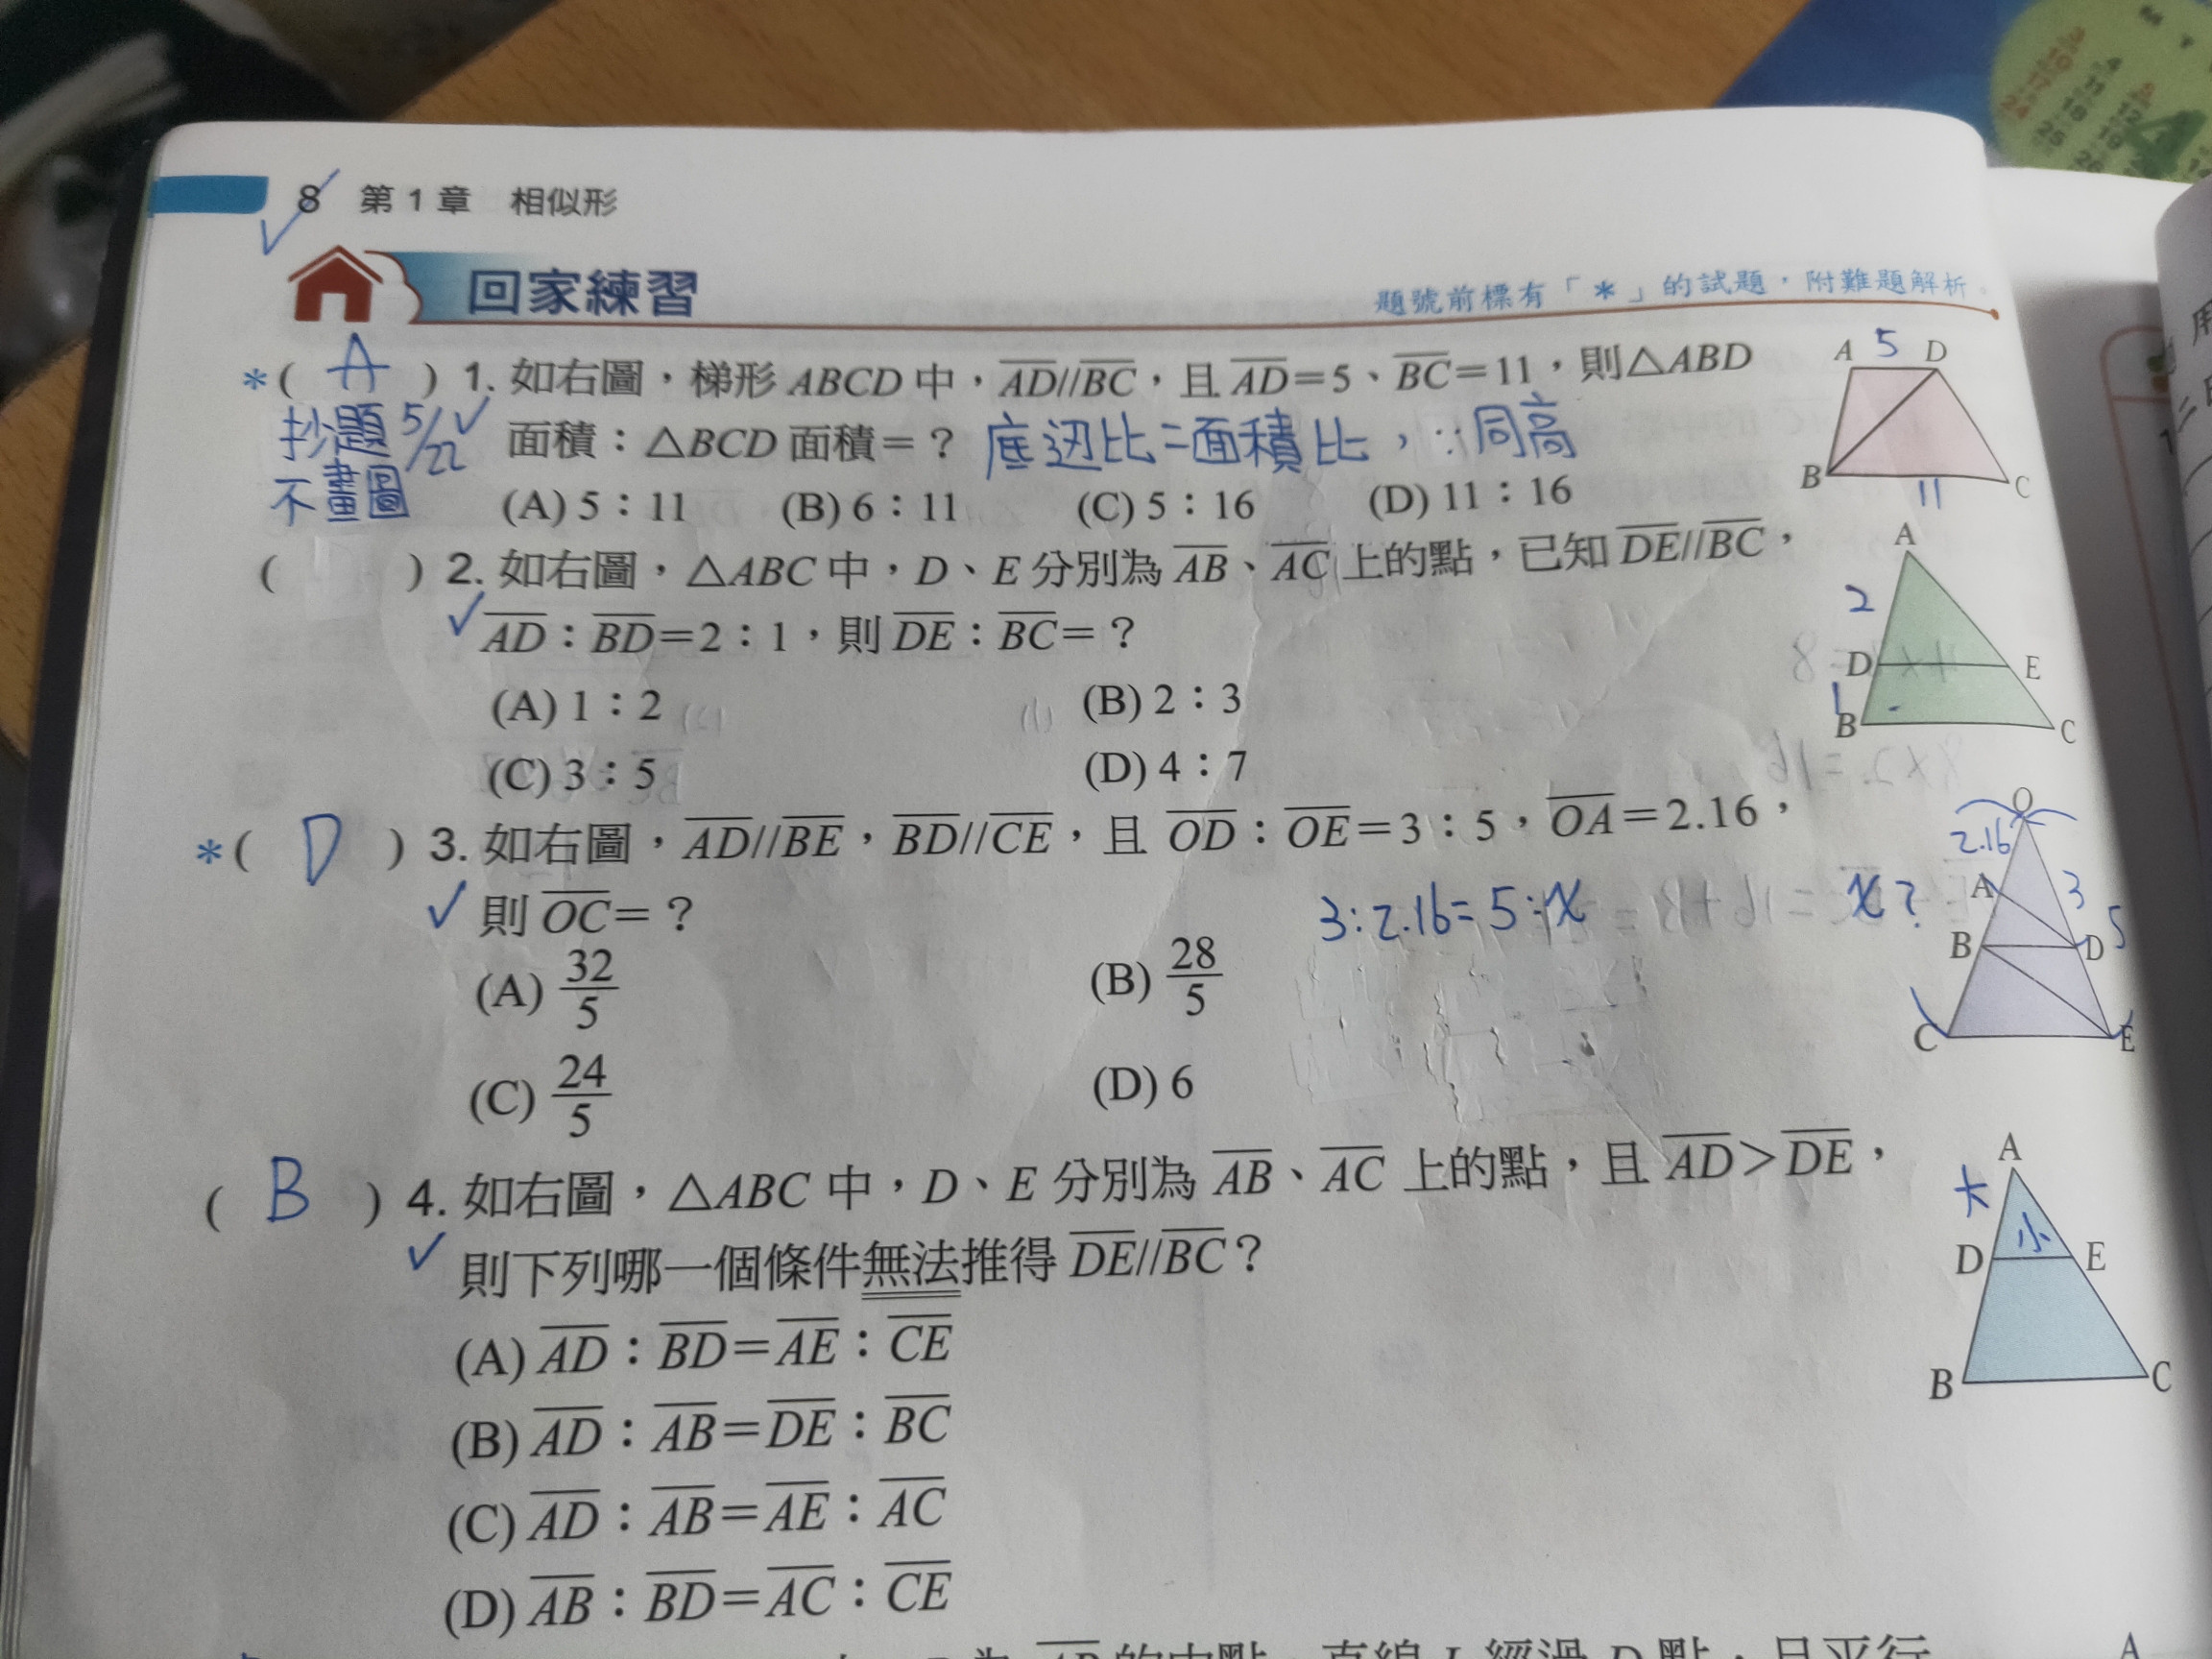 8 第 1 章 相似形
回家練習
題號前標有「*」的試題，附難題解析。
*( A ) 1. 如右圖，梯形 ABCD 中，AD//BC，且 AD＝5、BC＝11，則△ABD
抄題 5/22 ✓
不畫圖
面積：△BCD 面積＝？ 底边比=面積比，∵同高
(A) 5：11 (B) 6：11 (C) 5：16 (D) 11：16
A 5 D
B 11 C
( ) 2. 如右圖，△ABC 中，D、E 分別為 AB、AC 上的點，已知 DE//BC，
✓ AD：BD＝2：1，則 DE：BC＝？
(A) 1：2 (B) 2：3
(C) 3：5 (D) 4：7
A
2
D E
1
B C
*( D ) 3. 如右圖，AD//BE，BD//CE，且 OD：OE＝3：5，OA＝2.16，
✓ 則 OC＝？ 3:2.16=5:x x?
(A) 32/5 (B) 28/5
(C) 24/5 (D) 6
O
2.16
A 3
B D 5
C E
( B ) 4. 如右圖，△ABC 中，D、E 分別為 AB、AC 上的點，且 AD＞DE，
✓ 則下列哪一個條件無法推得 DE//BC？
(A) AD：BD＝AE：CE
(B) AD：AB＝DE：BC
(C) AD：AB＝AE：AC
(D) AB：BD＝AC：CE
A
大
小
D E
B C
為 AB 的中點，直線 L 經過 D 點，且平行
A